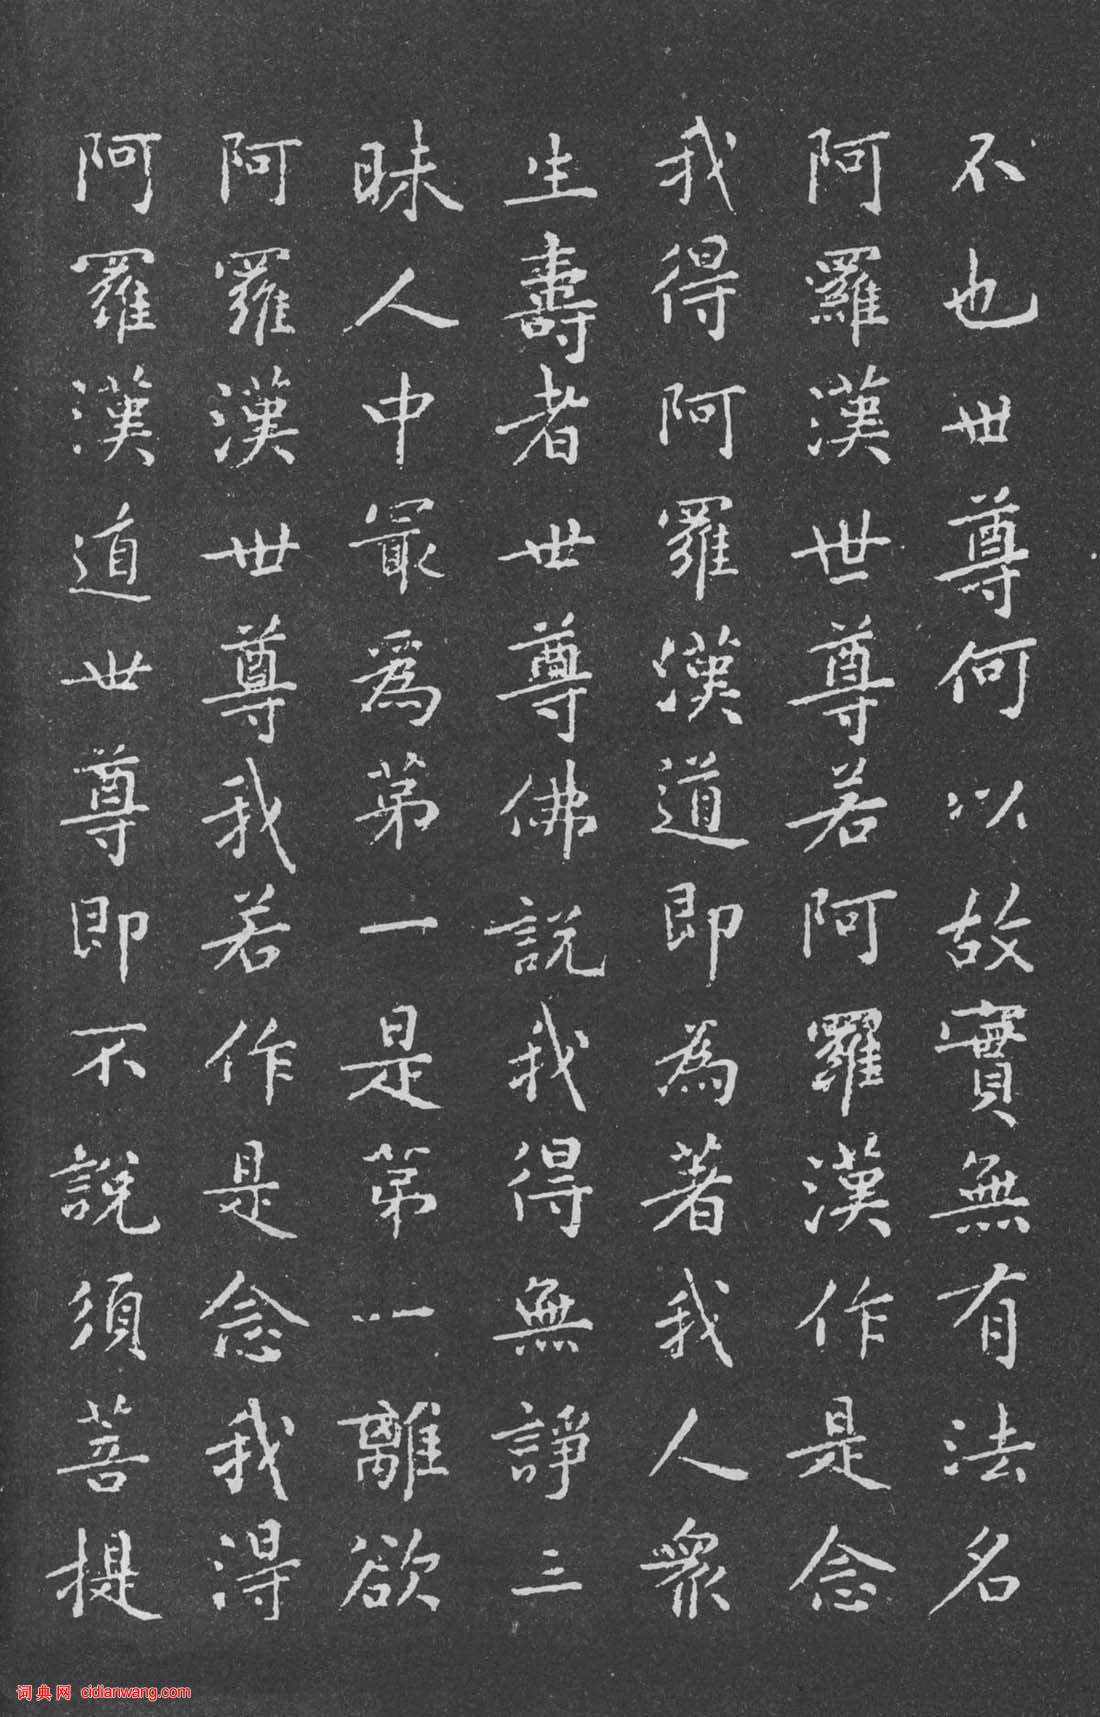 不也世尊何以故實無有法名
阿羅漢世尊若阿羅漢作是念
我得阿羅漢道即為著我人眾
生壽者世尊佛說我得無諍三
昧人中最為第一是第一離欲
阿羅漢世尊我若作是念我得
阿羅漢道世尊即不說須菩提
词典网 cidianwang.com